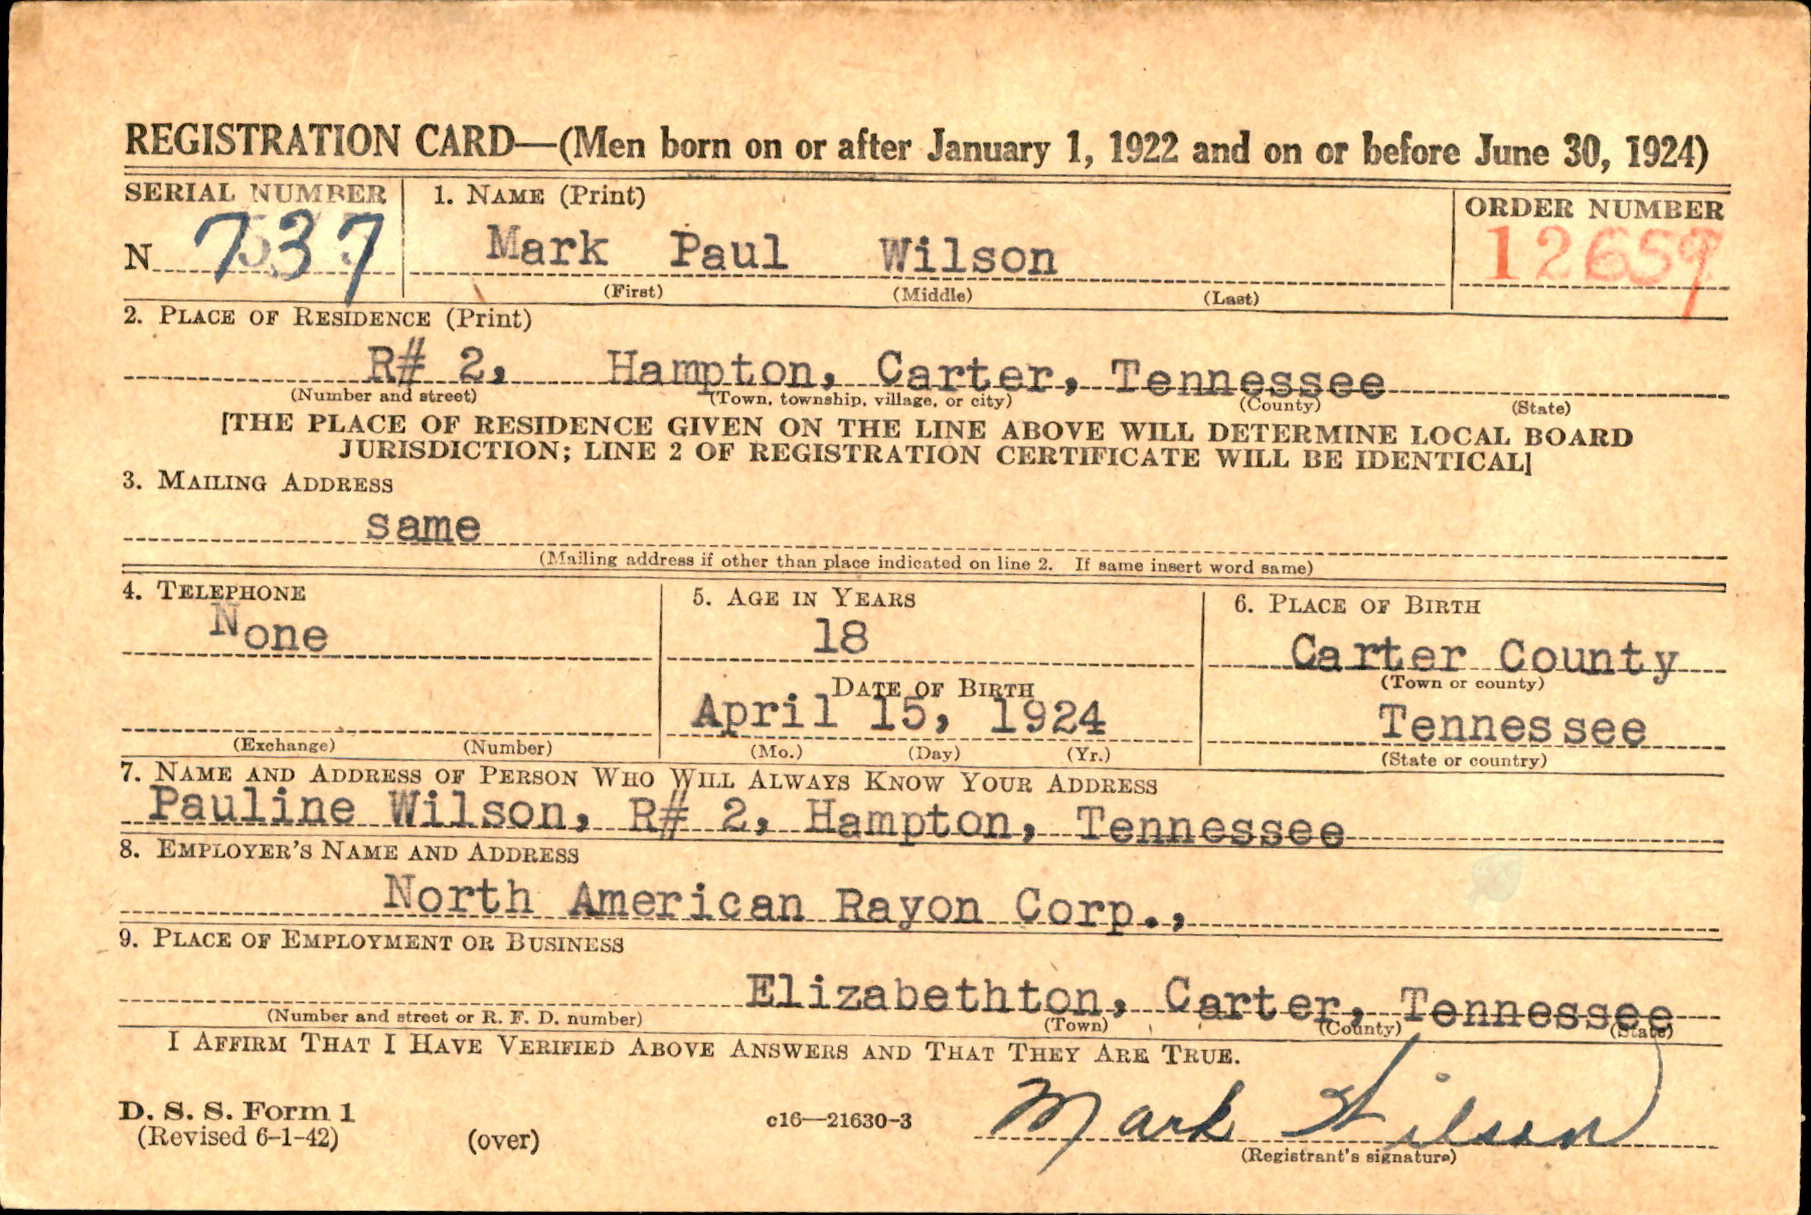 REGISTRATION CARD—(Men born on or after January 1, 1922 and on or before June 30, 1924)
SERIAL NUMBER
N 737
1. NAME (Print)
Mark Paul Wilson
(First) (Middle) (Last)
ORDER NUMBER
12659
2. PLACE OF RESIDENCE (Print)
R# 2, Hampton, Carter, Tennessee
(Number and street) (Town, township, village, or city) (County) (State)
[THE PLACE OF RESIDENCE GIVEN ON THE LINE ABOVE WILL DETERMINE LOCAL BOARD
JURISDICTION; LINE 2 OF REGISTRATION CERTIFICATE WILL BE IDENTICAL]
3. MAILING ADDRESS
same
(Mailing address if other than place indicated on line 2. If same insert word same)
4. TELEPHONE
None
(Exchange) (Number)
5. AGE IN YEARS
18
DATE OF BIRTH
April 15, 1924
(Mo.) (Day) (Yr.)
6. PLACE OF BIRTH
Carter County
(Town or county)
Tennessee
(State or country)
7. NAME AND ADDRESS OF PERSON WHO WILL ALWAYS KNOW YOUR ADDRESS
Pauline Wilson, R# 2, Hampton, Tennessee
8. EMPLOYER'S NAME AND ADDRESS
North American Rayon Corp.,
9. PLACE OF EMPLOYMENT OR BUSINESS
Elizabethton, Carter, Tennessee
(Number and street or R. F. D. number) (Town) (County) (State)
I AFFIRM THAT I HAVE VERIFIED ABOVE ANSWERS AND THAT THEY ARE TRUE.
D. S. S. Form 1
(Revised 6-1-42) (over) c16—21630-3
Mark Wilson
(Registrant's signature)